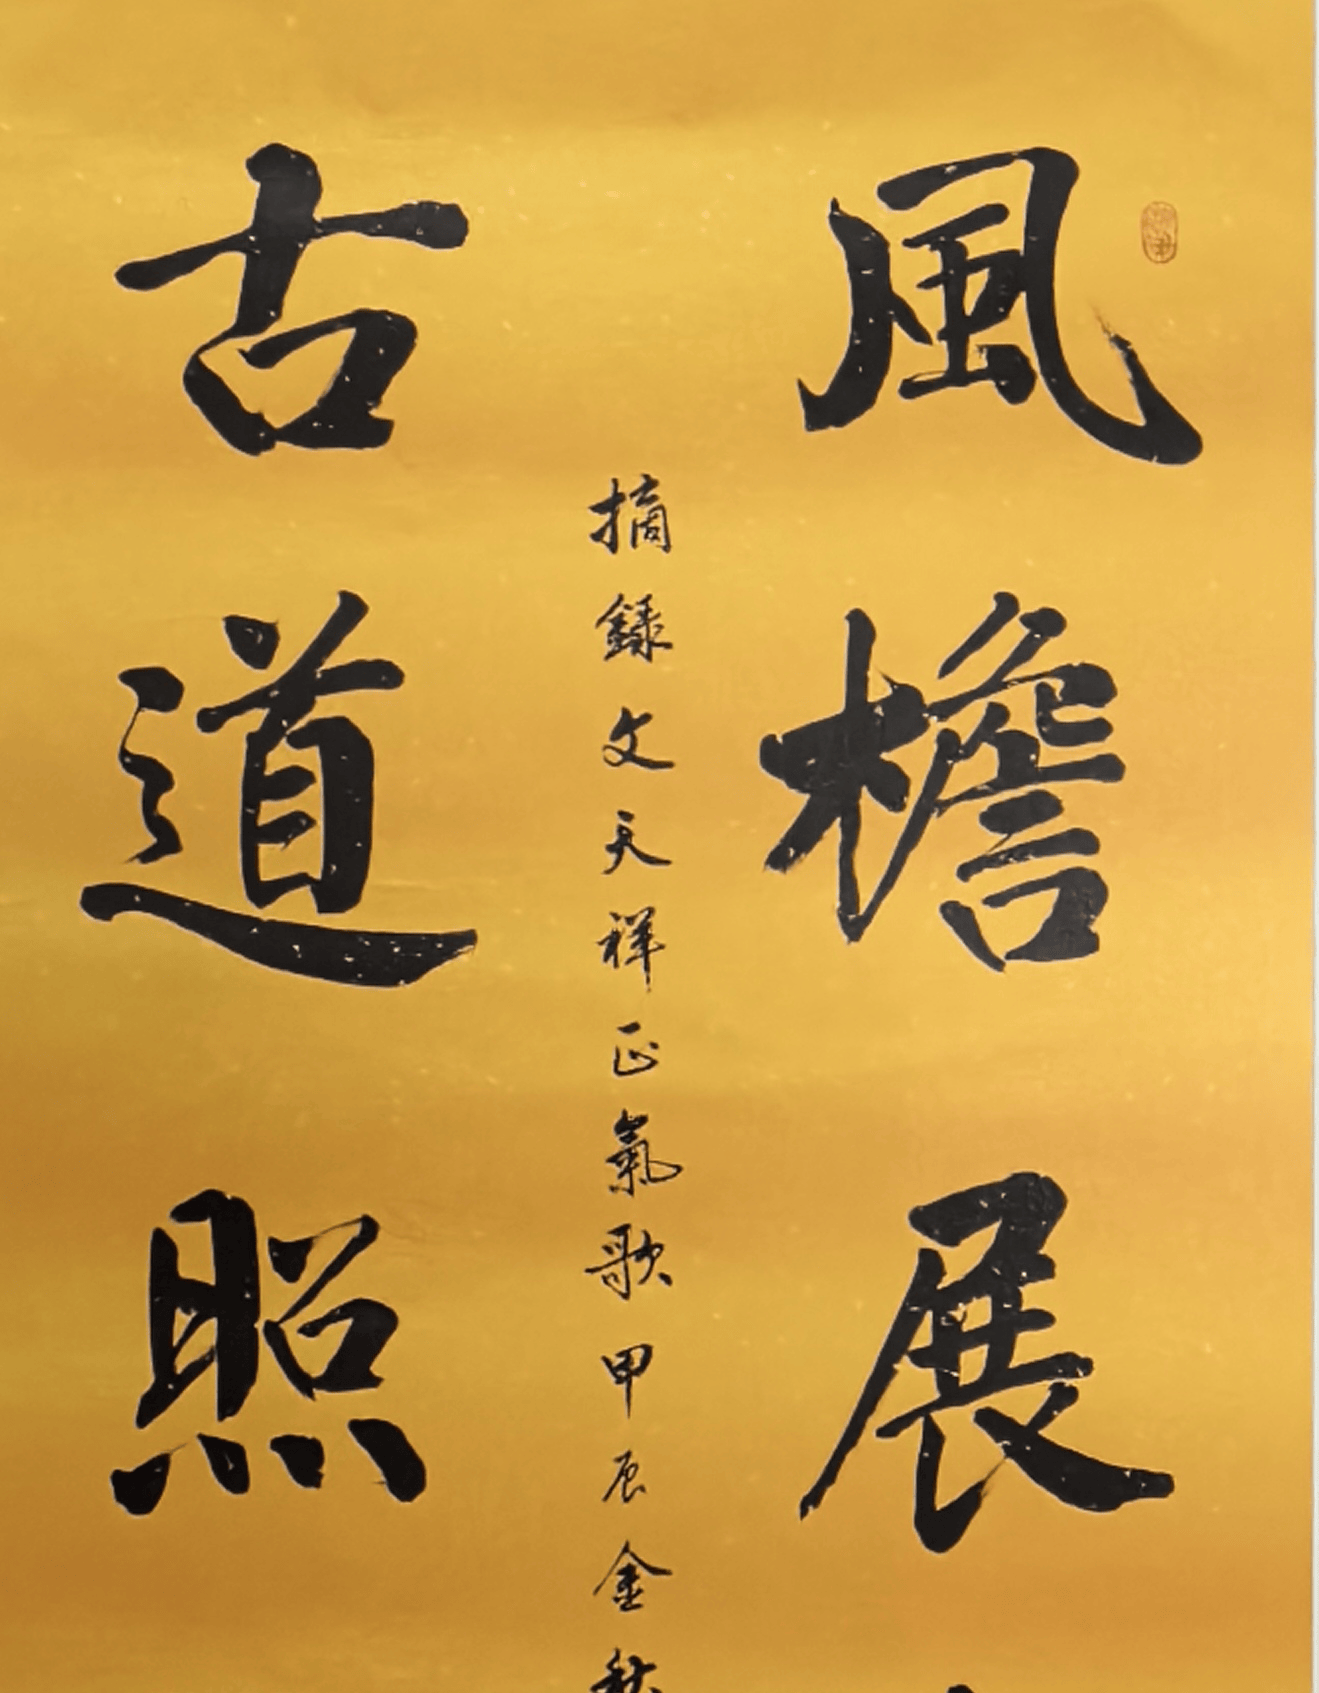 風檐展
古道照
摘録文天祥正氣歌甲辰金秋